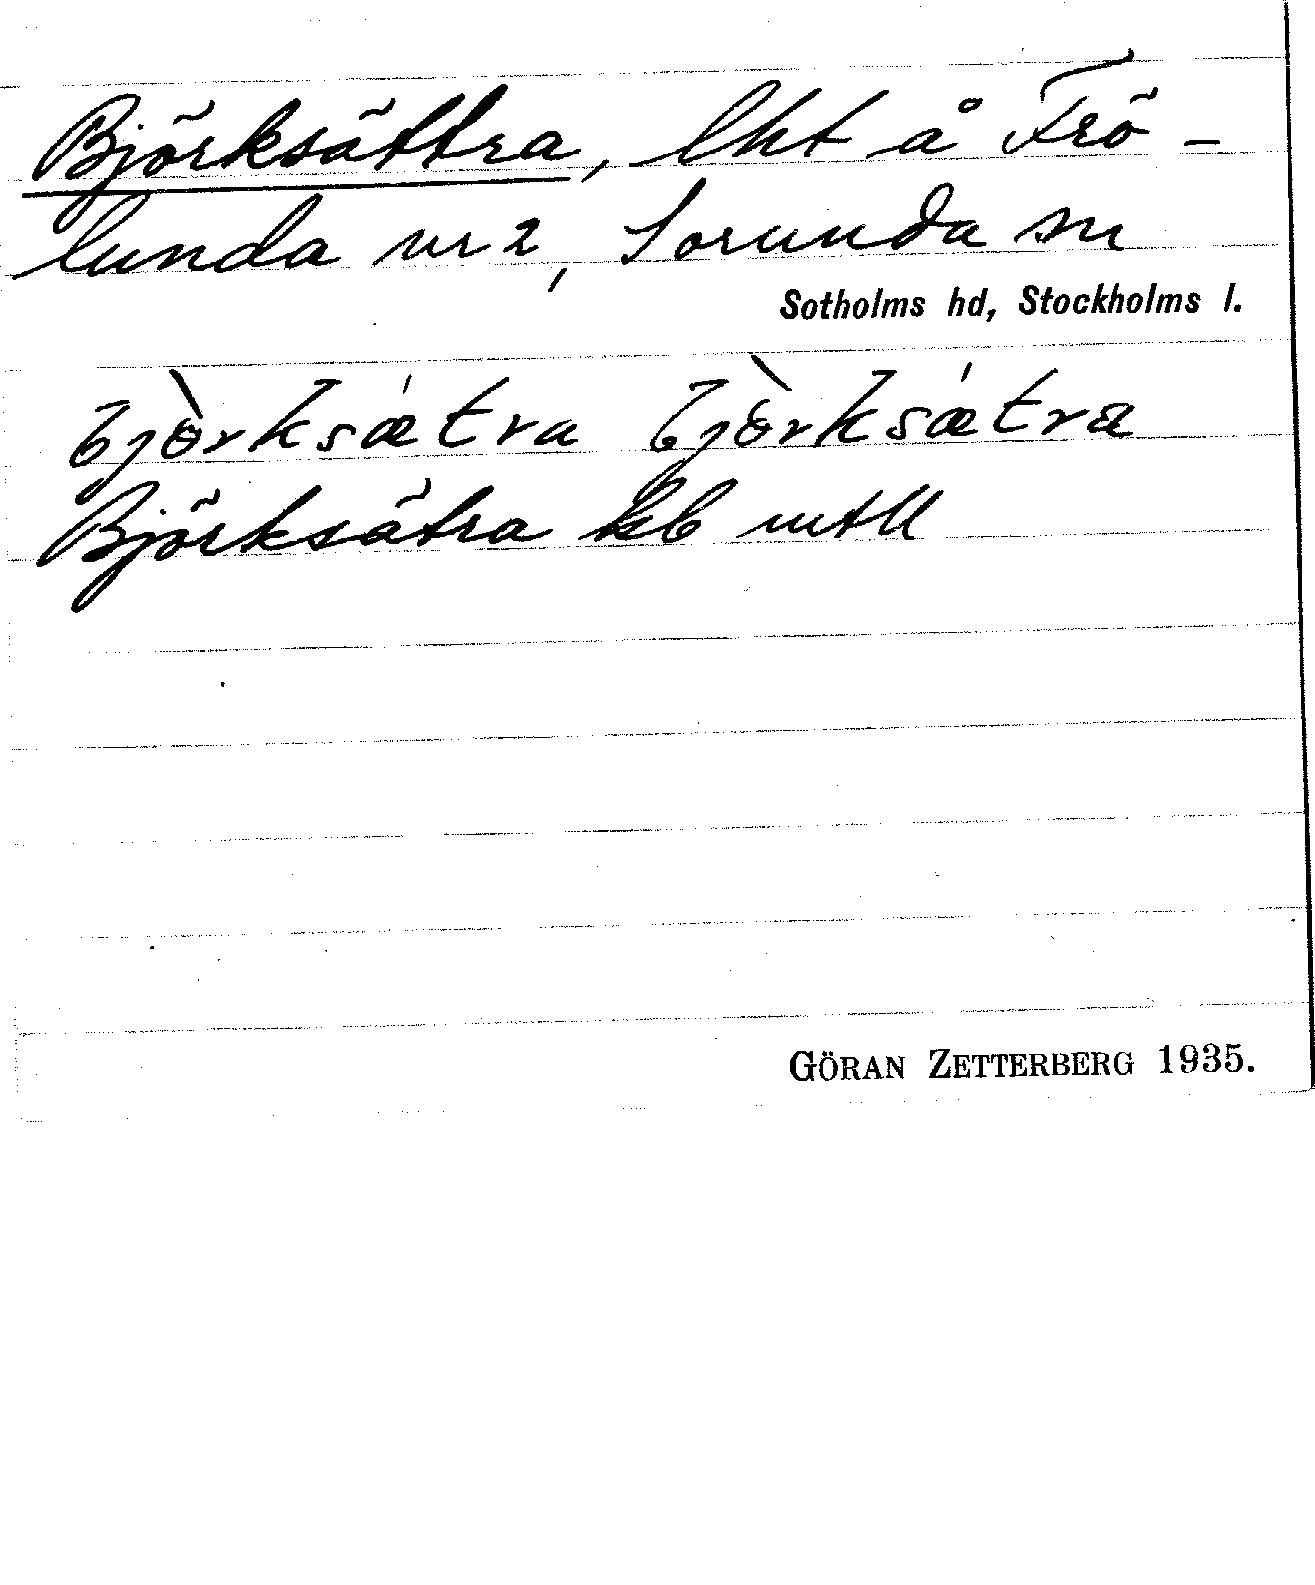 Björksättra, lht å Frö-
lunda nr 2, Sorunda sn
Sotholms hd, Stockholms l.
bjòrksǽtra bjòrksǽtra
Björksätra kb mtll
GÖRAN ZETTERBERG 1935.